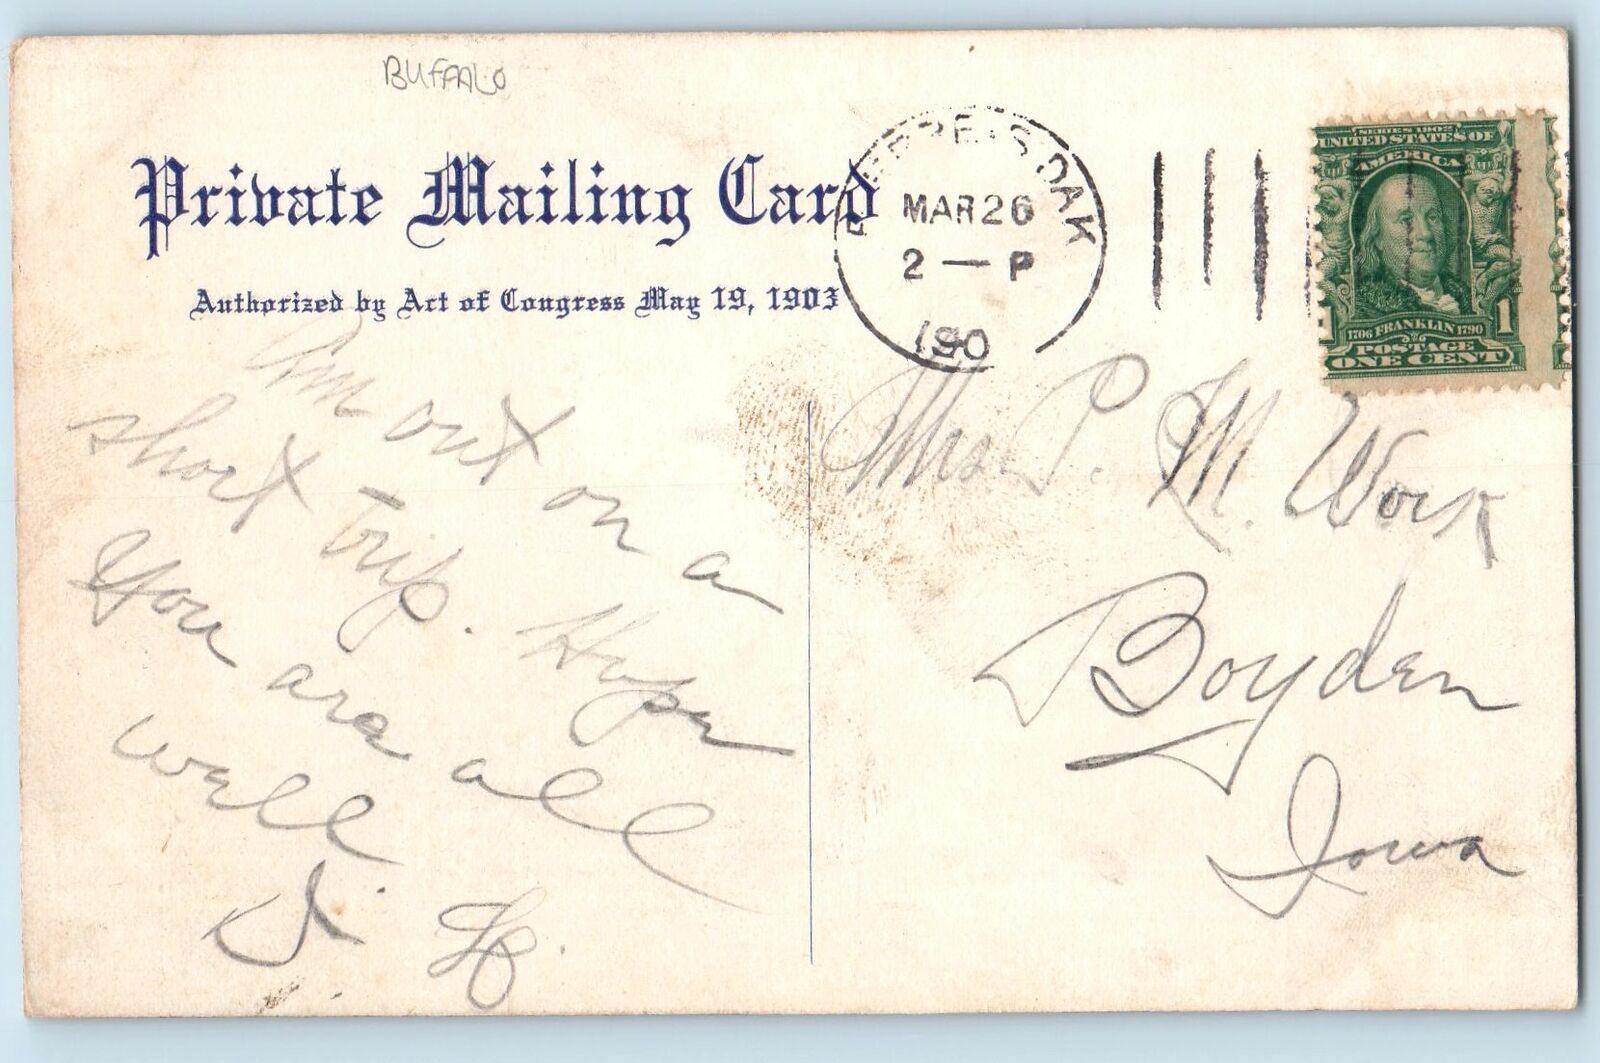 BUFFALO
Private Mailing Card
Authorized by Act of Congress May 19, 1903
S. DAK
MAR 26
2 — P
190
SERIES 1902
UNITED STATES OF
AMERICA
1706 FRANKLIN 1790
1
POSTAGE
ONE CENT
Am out on a
short trip. Hope
You are all
well
Mrs. P. M. Work
Boyden
Iowa